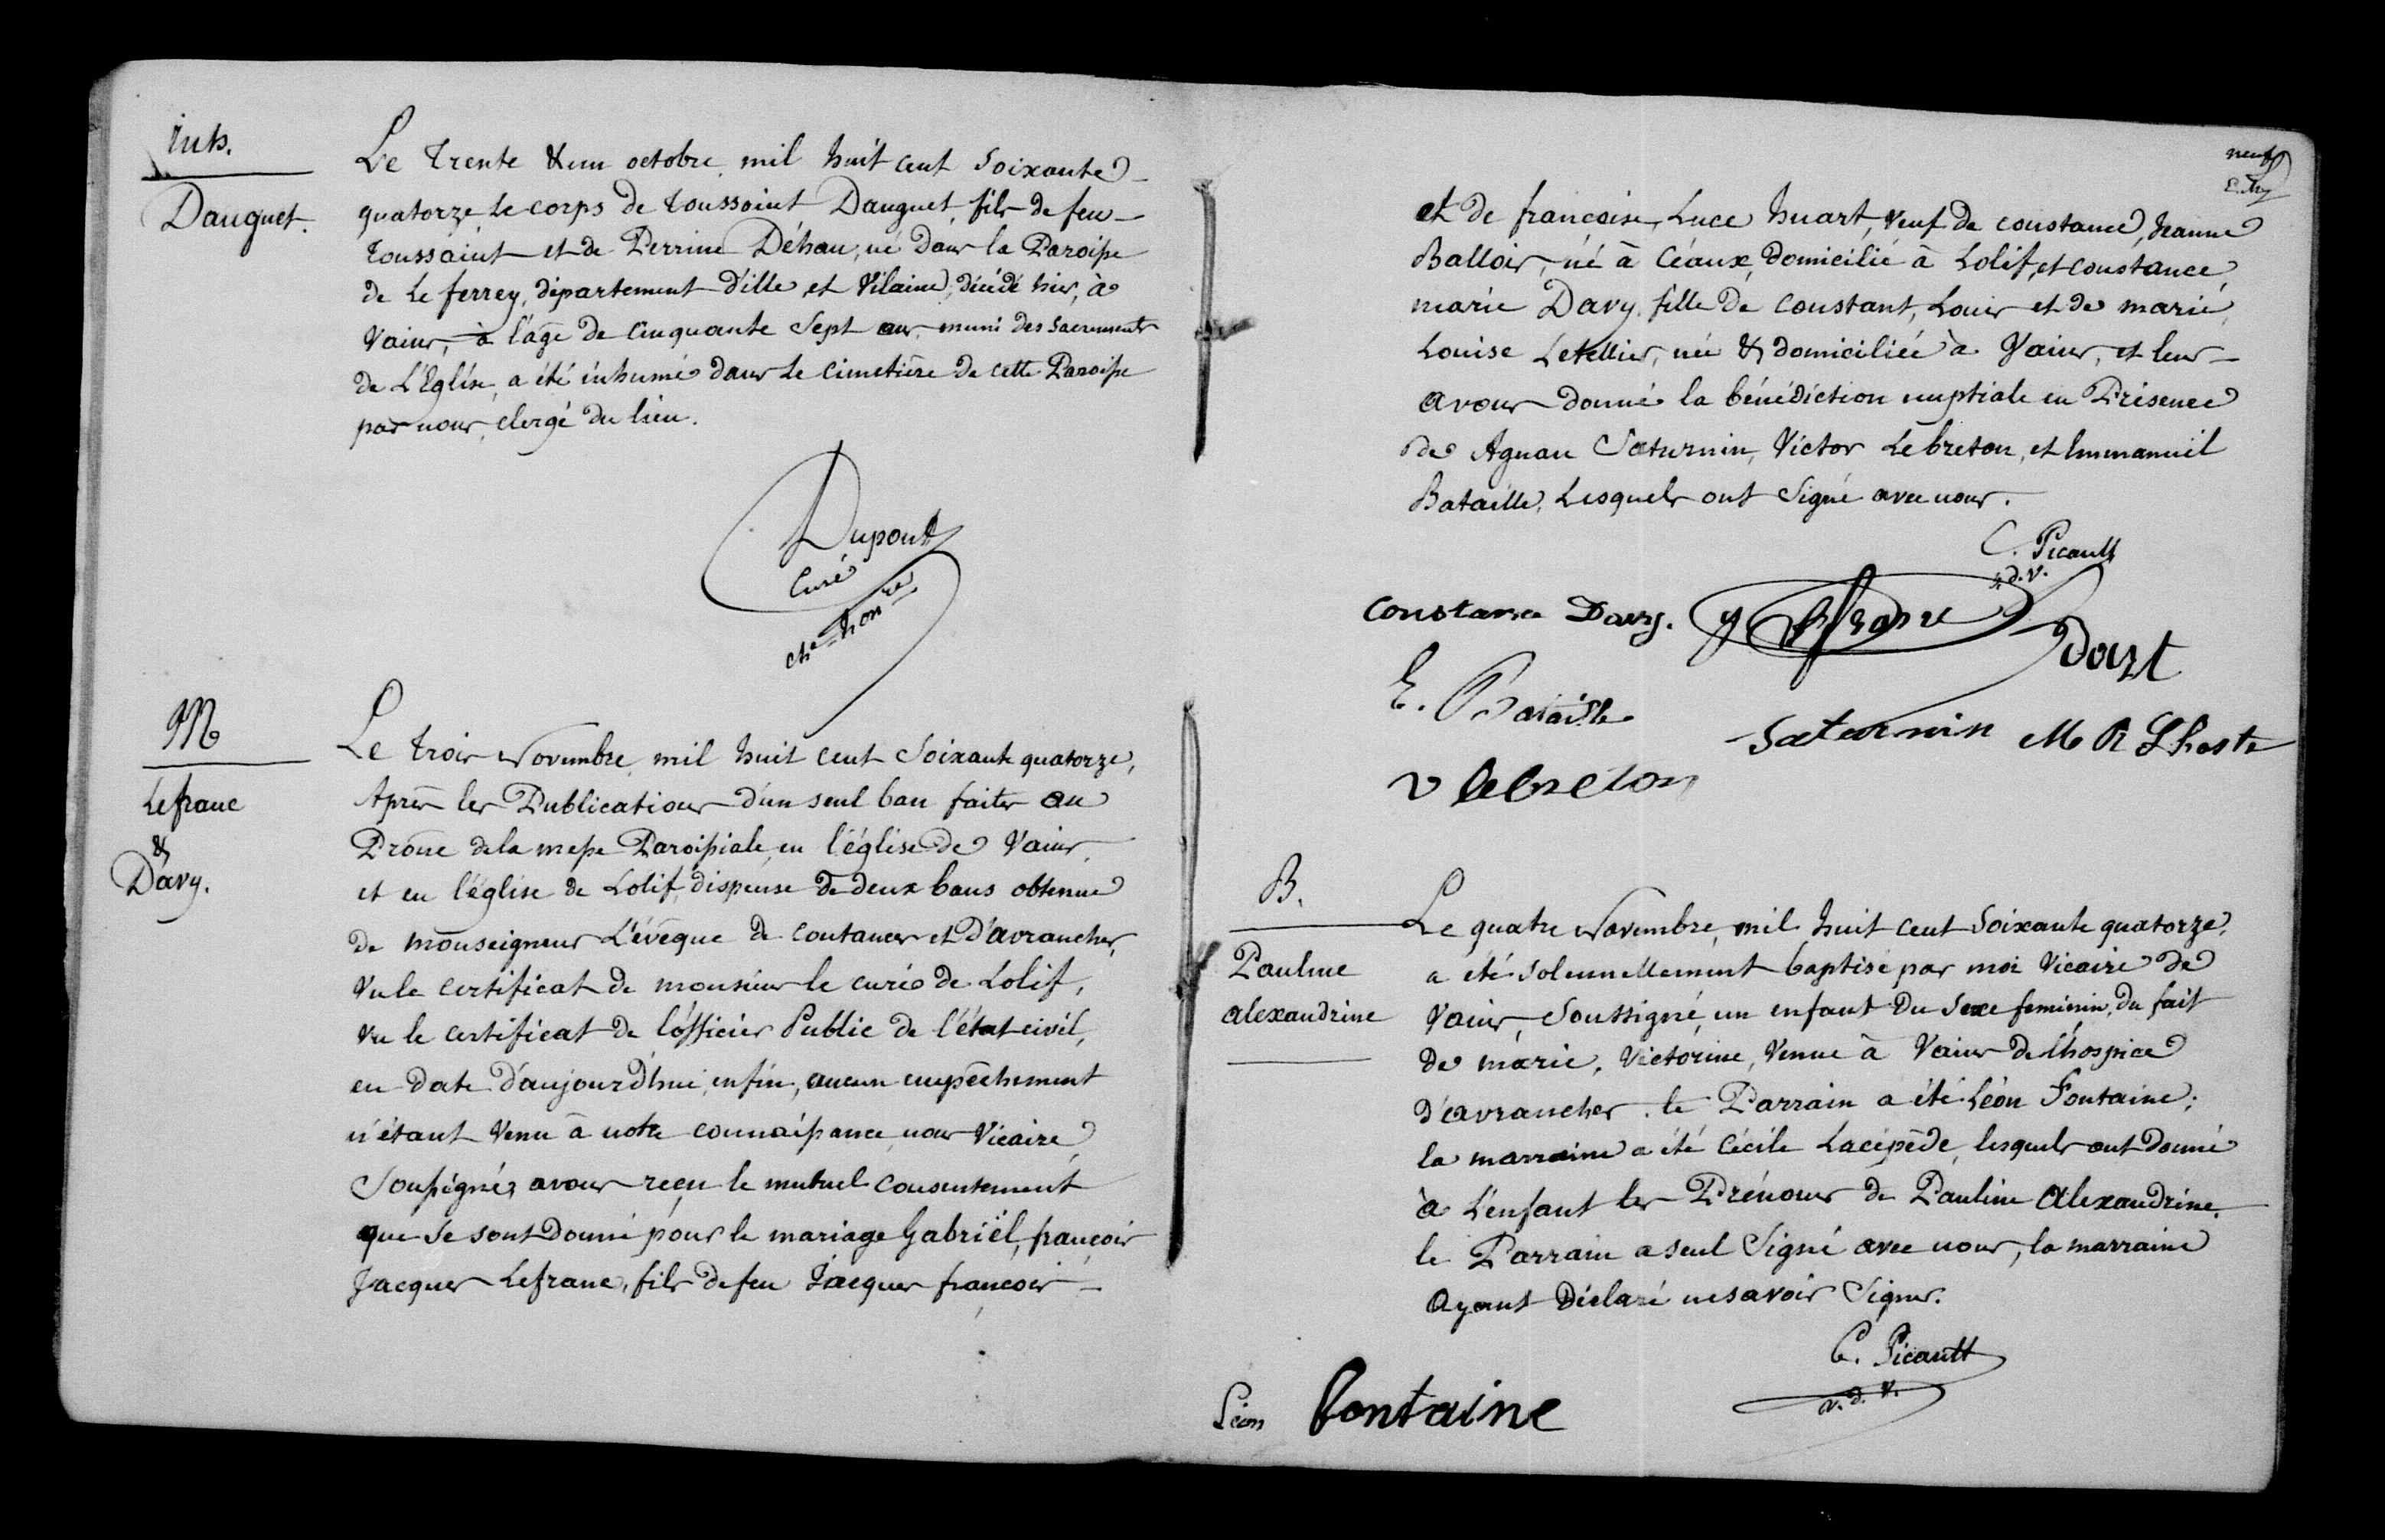 Inh.
Dauguet.
Le trente & un octobre mil huit cent soixante
quatorze, le corps de toussaint Dauguet, fils de feu
toussaint et de Perrine Déhan, né dans la Paroisse
de Le ferrey, département d'ille et Vilaine, décédé hier, à
Vains, à l'âge de cinquante sept ans, muni des sacrements
de L'Eglise, a été inhumé dans le cimetière de cette Paroisse
par nous, clergé du lieu.
Dupont
Curé
che honre
M
Lefranc
&
Davy.
Le trois Novembre, mil huit cent soixante quatorze,
Après les Publications d'un seul ban faites au
Prône de la messe Paroissiale, en l'église de Vains,
et en l'église de Lolif, dispense de deux bans obtenue
de monseigneur L'évêque de Coutances et d'avranches,
Vu le certificat de monsieur le curé de Lolif,
vu le certificat de l'officier Public de l'état civil,
en date d'aujourd'hui, enfin, aucun empêchement
n'étant venu à notre connaissance, nous Vicaire
Soussigné, avons reçu le mutuel consentement
que se sont donné pour le mariage Gabriël, françois
Jacques Lefranc, fils de feu Jacques françois
neuf
et de françoise, Luce huart, veuf de constance, Jeanne
Ballois, né à Céaux, domicilié à Lolif, et constance,
marie Davy, fille de constant, Louis et de marie,
Louise Letellier, née & domiciliée à Vains, et leur
avons donné la bénédiction nuptiale en Présence
de Agnan Saturnin, Victor Lebreton, et Emmanuël
Bataille, Lesquels ont signé avec nous.
C. Picault
v.d.v.
Constance Davy.
Dart
E. Bataille
Saturnin
M R Lhoste
v lebreton
B.
Pauline
alexandrine
Le quatre Novembre, mil huit cent soixante quatorze,
a été solennellement baptisé par moi Vicaire de
Vains, Soussigné, un enfant du sexe feminin, du fait
de marie, Victorine, Venue à Vains de l'hospice
d'avranches. le Parrain a été Léon Fontaine;
la marraine a été Cécile Lacépède, lesquels ont donné
à L'enfant les Prénoms de Pauline Alexandrine.
le Parrain a seul Signé avec nous, la marraine
Ayant Déclaré ne savoir Signer.
C. Picault
v. d. v.
Léon Fontaine